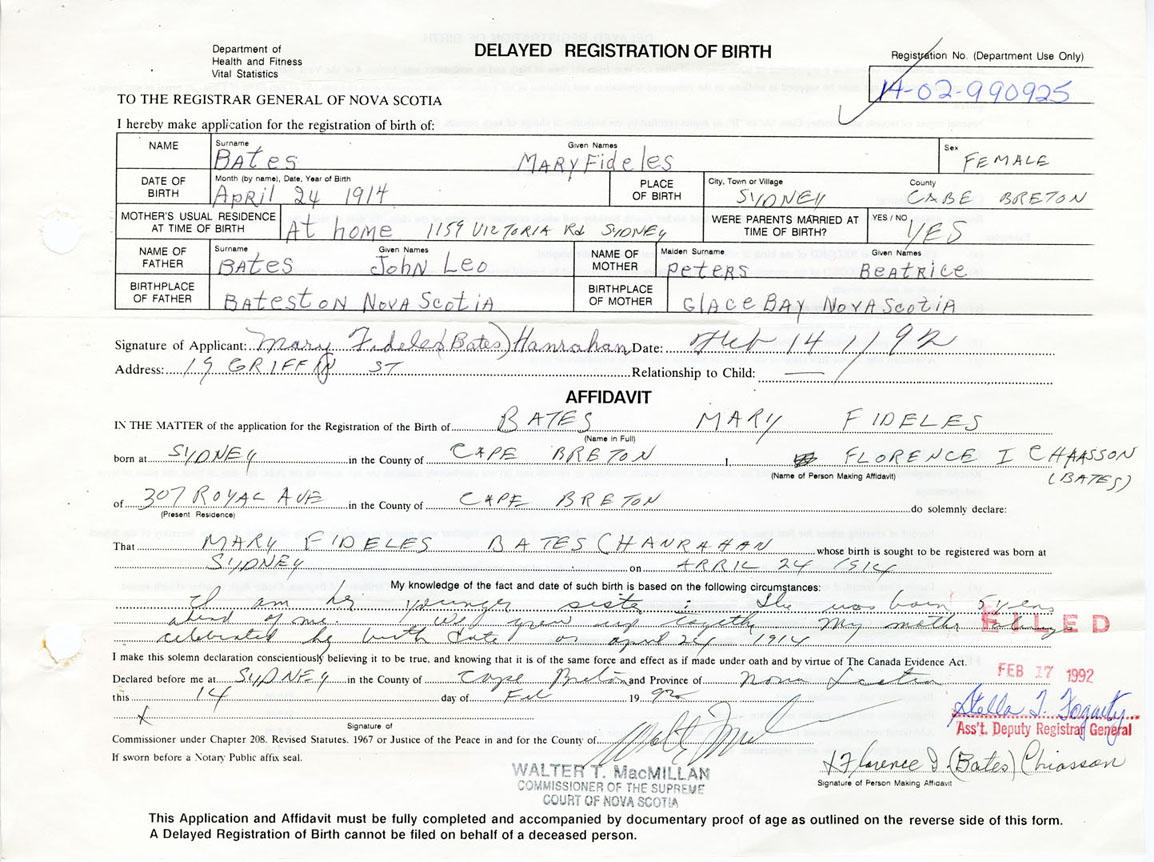 Department of
Health and Fitness
Vital Statistics
DELAYED REGISTRATION OF BIRTH
Registration No. (Department Use Only)
14-02-990925
TO THE REGISTRAR GENERAL OF NOVA SCOTIA
I hereby make application for the registration of birth of:
NAME Surname Given Names Sex
BAtes MARY Fideles FEMALE
DATE OF BIRTH Month (by name), Date, Year of Birth PLACE OF BIRTH City, Town or Village County
April 24 1914 SYDNEY CABE BRETON
MOTHER'S USUAL RESIDENCE AT TIME OF BIRTH At home 1159 VICTORIA Rd SYDNEY WERE PARENTS MARRIED AT TIME OF BIRTH? YES / NO YES
NAME OF FATHER Surname Given Names NAME OF MOTHER Maiden Surname Given Names
BAtes John Leo Peters Beatrice
BIRTHPLACE OF FATHER BAtestoN NovA ScotiA BIRTHPLACE OF MOTHER GlAce BAY NovA ScotiA
Signature of Applicant: Mary Fideles (Bates) Hanrahan Date: Feb 14 1/92
Address: 19 GRIFFIN ST Relationship to Child: —
AFFIDAVIT
IN THE MATTER of the application for the Registration of the Birth of BATES MARY FIDELES
(Name in Full)
born at SYDNEY in the County of CAPE BRETON I, FLORENCE I CHAASSON
(Name of Person Making Affidavit) (BATES)
of 307 ROYAL AVE in the County of CAPE BRETON do solemnly declare:
(Present Residence)
That MARY FIDELES BATES (HANRAHAN whose birth is sought to be registered was born at
SYDNEY on APRIL 24 1914
My knowledge of the fact and date of such birth is based on the following circumstances:
I am her younger sister. She was born 5 years
ahead of me. We grew up together My mother
celebrated her birth date on april 24 1914
FILED
I make this solemn declaration conscientiously believing it to be true, and knowing that it is of the same force and effect as if made under oath and by virtue of The Canada Evidence Act.
FEB 17 1992
Declared before me at SYDNEY in the County of Cape Breton and Province of Nova Scotia
this 14 day of Feb 1992
Stella T. Fogarty
Ass't. Deputy Registrar General
X
Signature of
Commissioner under Chapter 208. Revised Statutes. 1967 or Justice of the Peace in and for the County of
If sworn before a Notary Public affix seal.
X Florence I. (Bates) Chiasson
Signature of Person Making Affidavit
WALTER T. MacMILLAN
COMMISSIONER OF THE SUPREME
COURT OF NOVA SCOTIA
This Application and Affidavit must be fully completed and accompanied by documentary proof of age as outlined on the reverse side of this form.
A Delayed Registration of Birth cannot be filed on behalf of a deceased person.